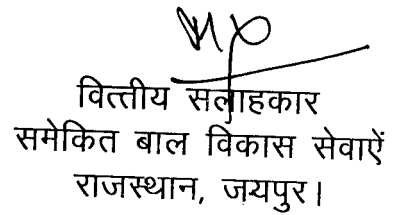 वित्तीय सलाहकार
समेकित बाल विकास सेवाऐं
राजस्थान, जयपुर।